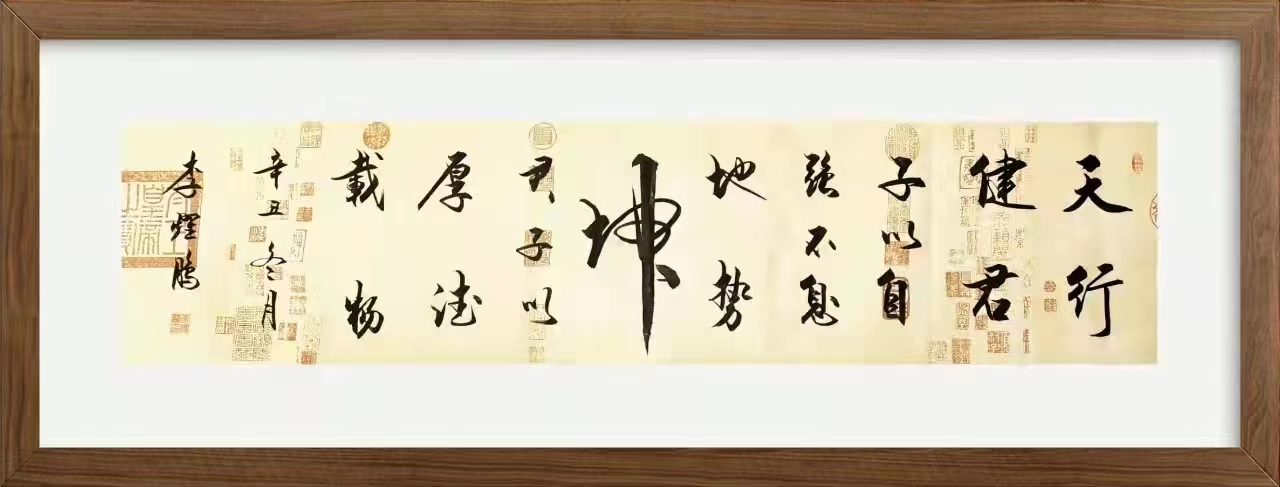 天行
健君
子以自
強不息
地势
坤
君子以
厚德
载物
辛丑冬月
李煜鹏